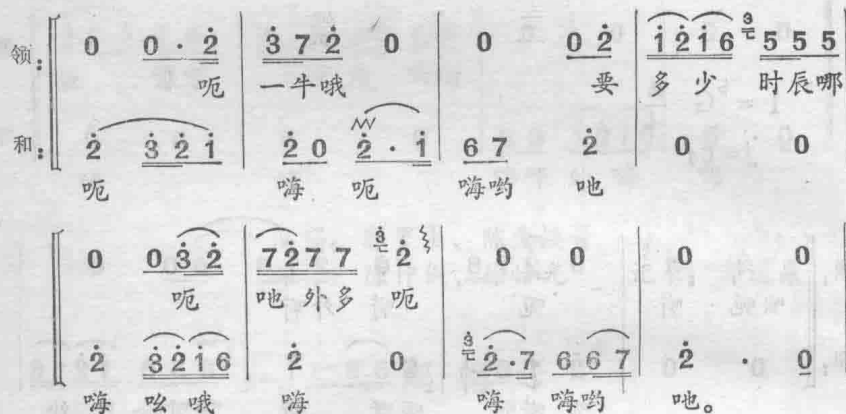 领： 0 0·2 3 7 2 0 0 0 2 1 2 1 6 3 5 5 5
呃 一牛哦 要 多 少 时辰哪
和： 2 3 2 1 2 0 2·1 6 7 2 0 0
呃 嗨 呃 嗨哟 吔
0 0 3 2 7 2 7 7 3 2 0 0 0 0
呃 吔 外多 呃
2 3 2 1 6 2 0 3 2·7 6 6 7 2 · 0
嗨 吆 哦 嗨 嗨 嗨哟 吔。